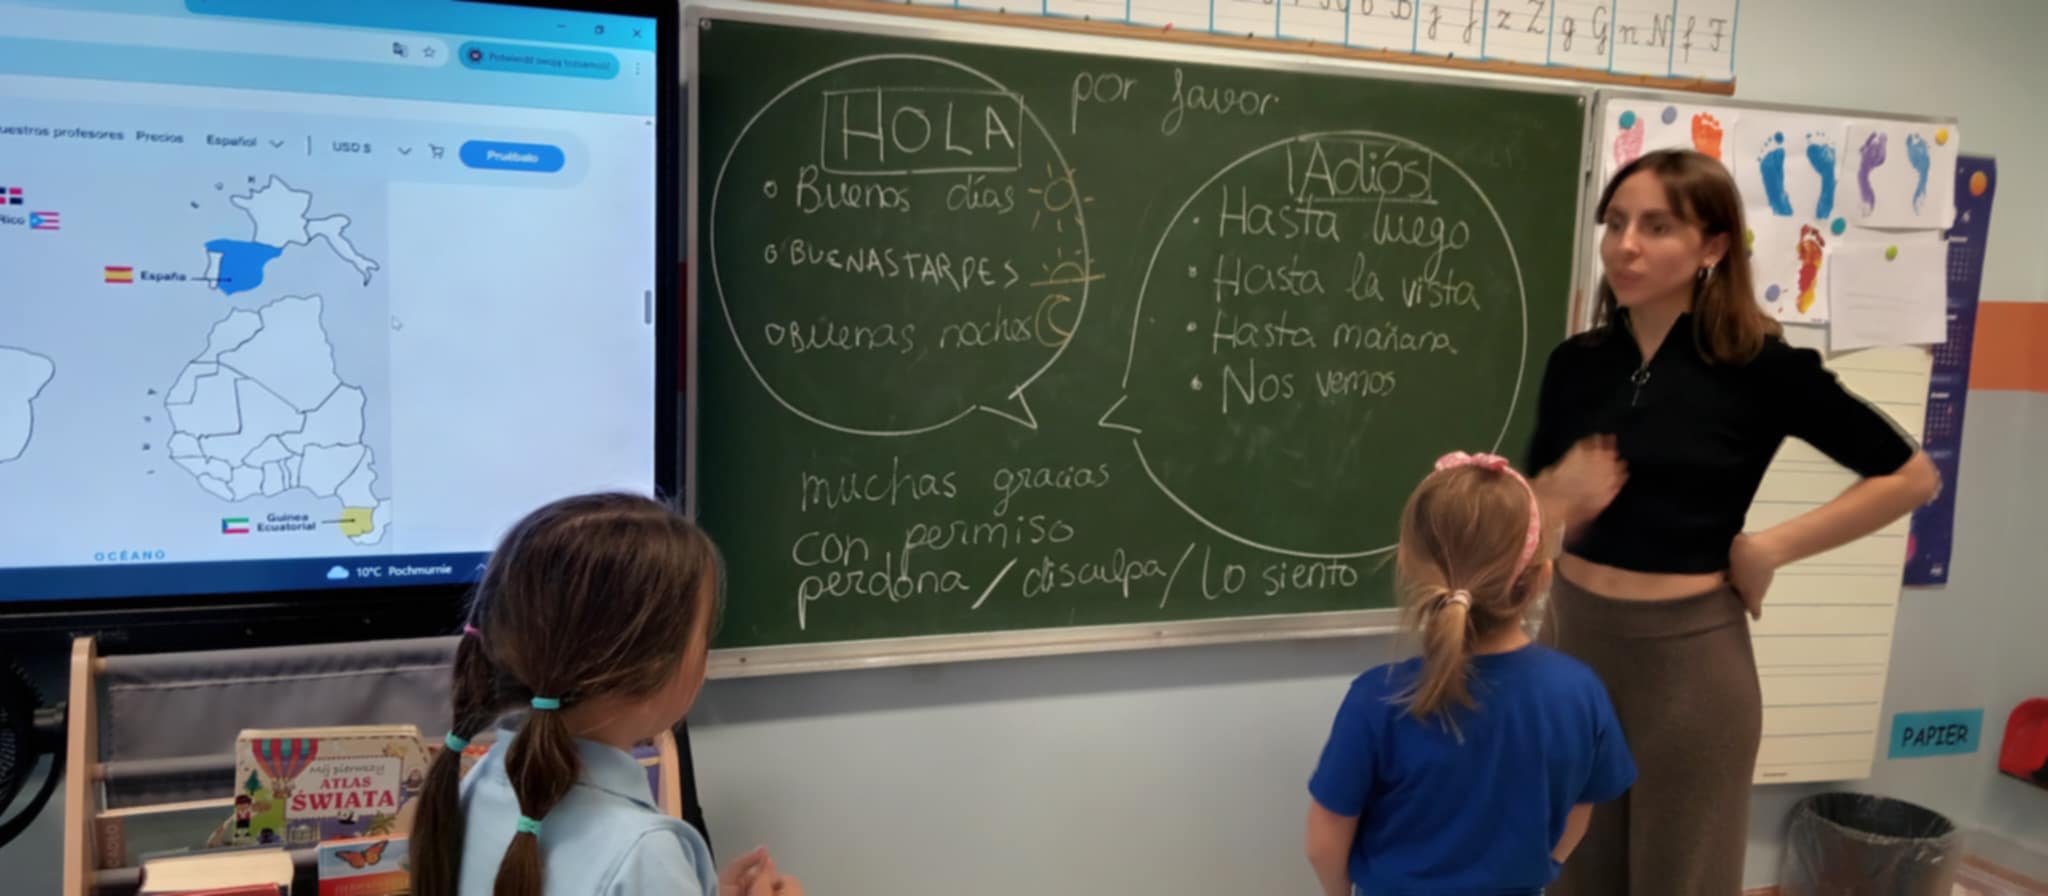 Potwierdź swoją tożsamość
uestros profesores Precios Español USD $ Pruébalo
Rico
España
Guinea
Ecuatorial
OCÉANO
10°C Pochmurnie
por favor
HOLA
Buenos días
BUENASTARDES
Buenas noches
¡Adiós!
Hasta luego
Hasta la vista
Hasta mañana
Nos vemos
muchas gracias
con permiso
perdona / disculpa / lo siento
z Z g G n N f F
Mój pierwszy
ATLAS
ŚWIATA
PAPIER